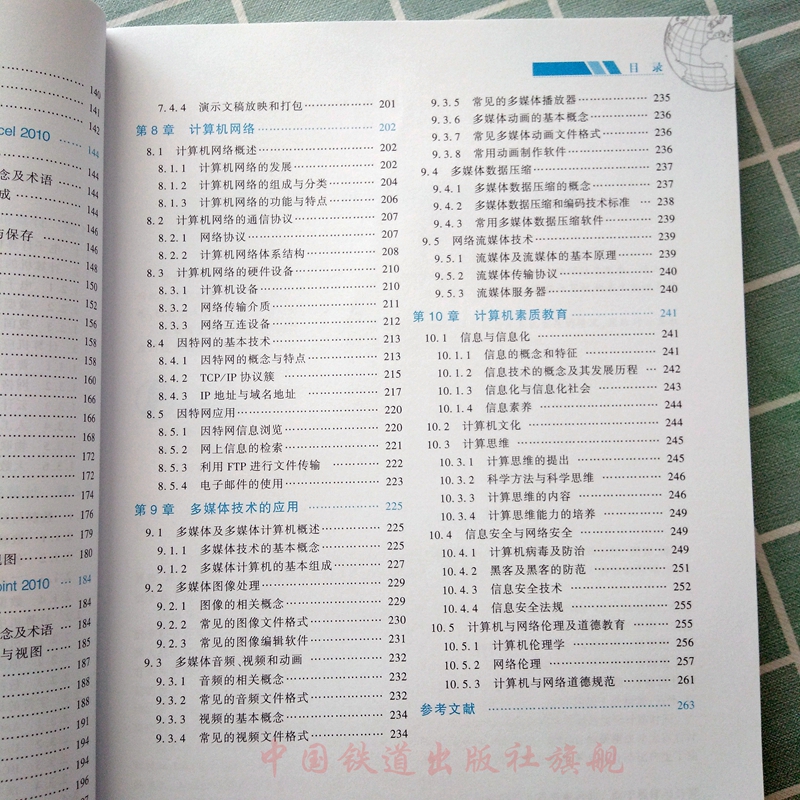 140
141
142
cel 2010 ······ 144
念及术语 ······ 144
成 ······ 144
146
与保存 ······ 146
146
148
148
150
152
156
158
158
160
166
166
168
172
172
174
176
179
视图 ······ 180
oint 2010 ··· 184
184
念及术语 ··· 184
与视图 ······ 185
187
188
188
191
194
194
196
目 录
7.4.4 演示文稿放映和打包 ······ 201
第 8 章 计算机网络 ······ 202
8.1 计算机网络概述 ······ 202
8.1.1 计算机网络的发展 ······ 202
8.1.2 计算机网络的组成与分类 ······ 204
8.1.3 计算机网络的功能与特点 ······ 206
8.2 计算机网络的通信协议 ······ 207
8.2.1 网络协议 ······ 207
8.2.2 计算机网络体系结构 ······ 208
8.3 计算机网络的硬件设备 ······ 210
8.3.1 计算机设备 ······ 210
8.3.2 网络传输介质 ······ 211
8.3.3 网络互连设备 ······ 212
8.4 因特网的基本技术 ······ 213
8.4.1 因特网的概念与特点 ······ 213
8.4.2 TCP/IP 协议簇 ······ 215
8.4.3 IP 地址与域名地址 ······ 217
8.5 因特网应用 ······ 220
8.5.1 因特网信息浏览 ······ 220
8.5.2 网上信息的检索 ······ 221
8.5.3 利用 FTP 进行文件传输 ······ 222
8.5.4 电子邮件的使用 ······ 223
第 9 章 多媒体技术的应用 ······ 225
9.1 多媒体及多媒体计算机概述 ······ 225
9.1.1 多媒体技术的基本概念 ······ 225
9.1.2 多媒体计算机的基本组成 ······ 227
9.2 多媒体图像处理 ······ 229
9.2.1 图像的相关概念 ······ 229
9.2.2 常见的图像文件格式 ······ 230
9.2.3 常见的图像编辑软件 ······ 231
9.3 多媒体音频、视频和动画 ······ 232
9.3.1 音频的相关概念 ······ 232
9.3.2 常见的音频文件格式 ······ 232
9.3.3 视频的基本概念 ······ 234
9.3.4 常见的视频文件格式 ······ 234
9.3.5 常见的多媒体播放器 ······ 235
9.3.6 多媒体动画的基本概念 ······ 236
9.3.7 常见多媒体动画文件格式 ······ 236
9.3.8 常用动画制作软件 ······ 236
9.4 多媒体数据压缩 ······ 237
9.4.1 多媒体数据压缩的概念 ······ 237
9.4.2 多媒体数据压缩和编码技术标准 ··· 238
9.4.3 常用多媒体数据压缩软件 ······ 239
9.5 网络流媒体技术 ······ 239
9.5.1 流媒体及流媒体的基本原理 ······ 239
9.5.2 流媒体传输协议 ······ 240
9.5.3 流媒体服务器 ······ 240
第 10 章 计算机素质教育 ······ 241
10.1 信息与信息化 ······ 241
10.1.1 信息的概念和特征 ······ 241
10.1.2 信息技术的概念及其发展历程 ··· 242
10.1.3 信息化与信息化社会 ······ 243
10.1.4 信息素养 ······ 244
10.2 计算机文化 ······ 244
10.3 计算思维 ······ 245
10.3.1 计算思维的提出 ······ 245
10.3.2 科学方法与科学思维 ······ 246
10.3.3 计算思维的内容 ······ 246
10.3.4 计算思维能力的培养 ······ 249
10.4 信息安全与网络安全 ······ 249
10.4.1 计算机病毒及防治 ······ 249
10.4.2 黑客及黑客的防范 ······ 251
10.4.3 信息安全技术 ······ 252
10.4.4 信息安全法规 ······ 255
10.5 计算机与网络伦理及道德教育 ······ 255
10.5.1 计算机伦理学 ······ 256
10.5.2 网络伦理 ······ 257
10.5.3 计算机与网络道德规范 ······ 261
参考文献 ······ 263
中国铁道出版社旗舰